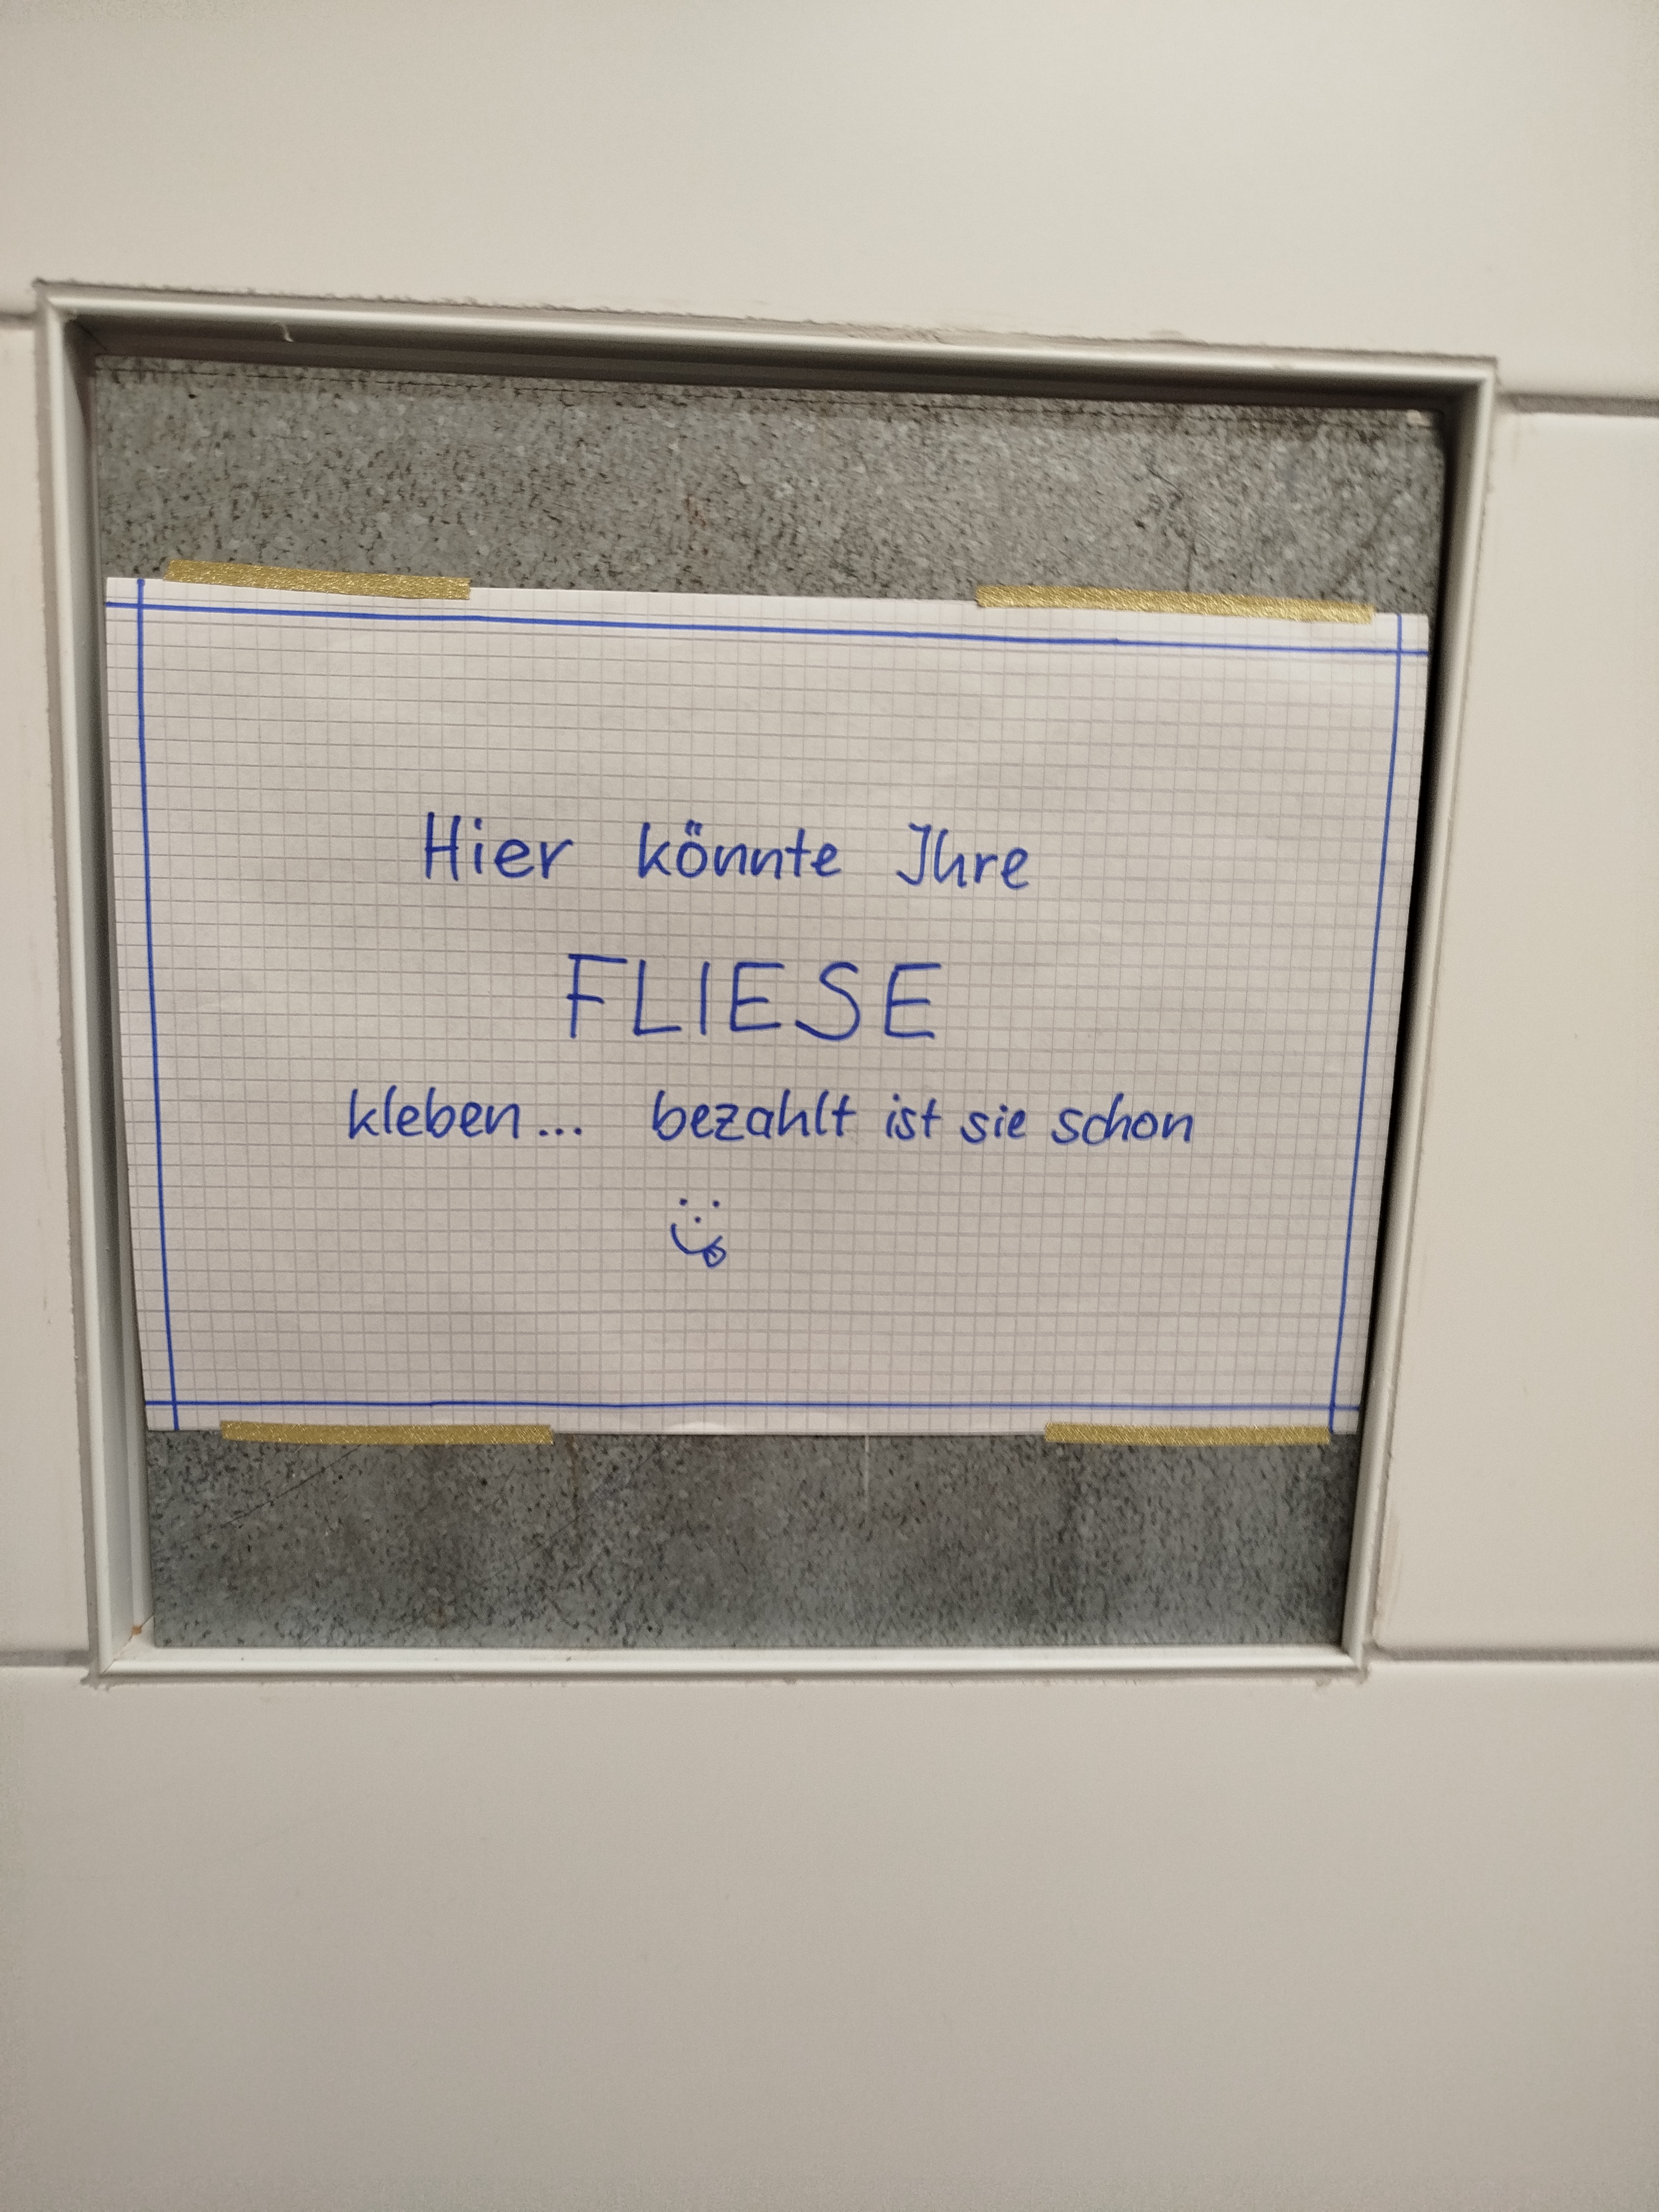 Hier könnte Ihre
FLIESE
kleben... bezahlt ist sie schon